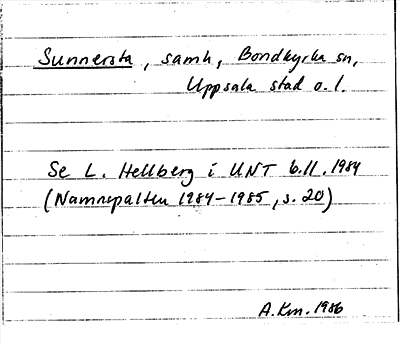 Sunnersta, samh, Bondkyrka sn,
Uppsala stad o. l.
Se L. Hellberg i UNT 6.11.1984
(Namnspalten 1984-1985, s. 20)
A.Km. 1986